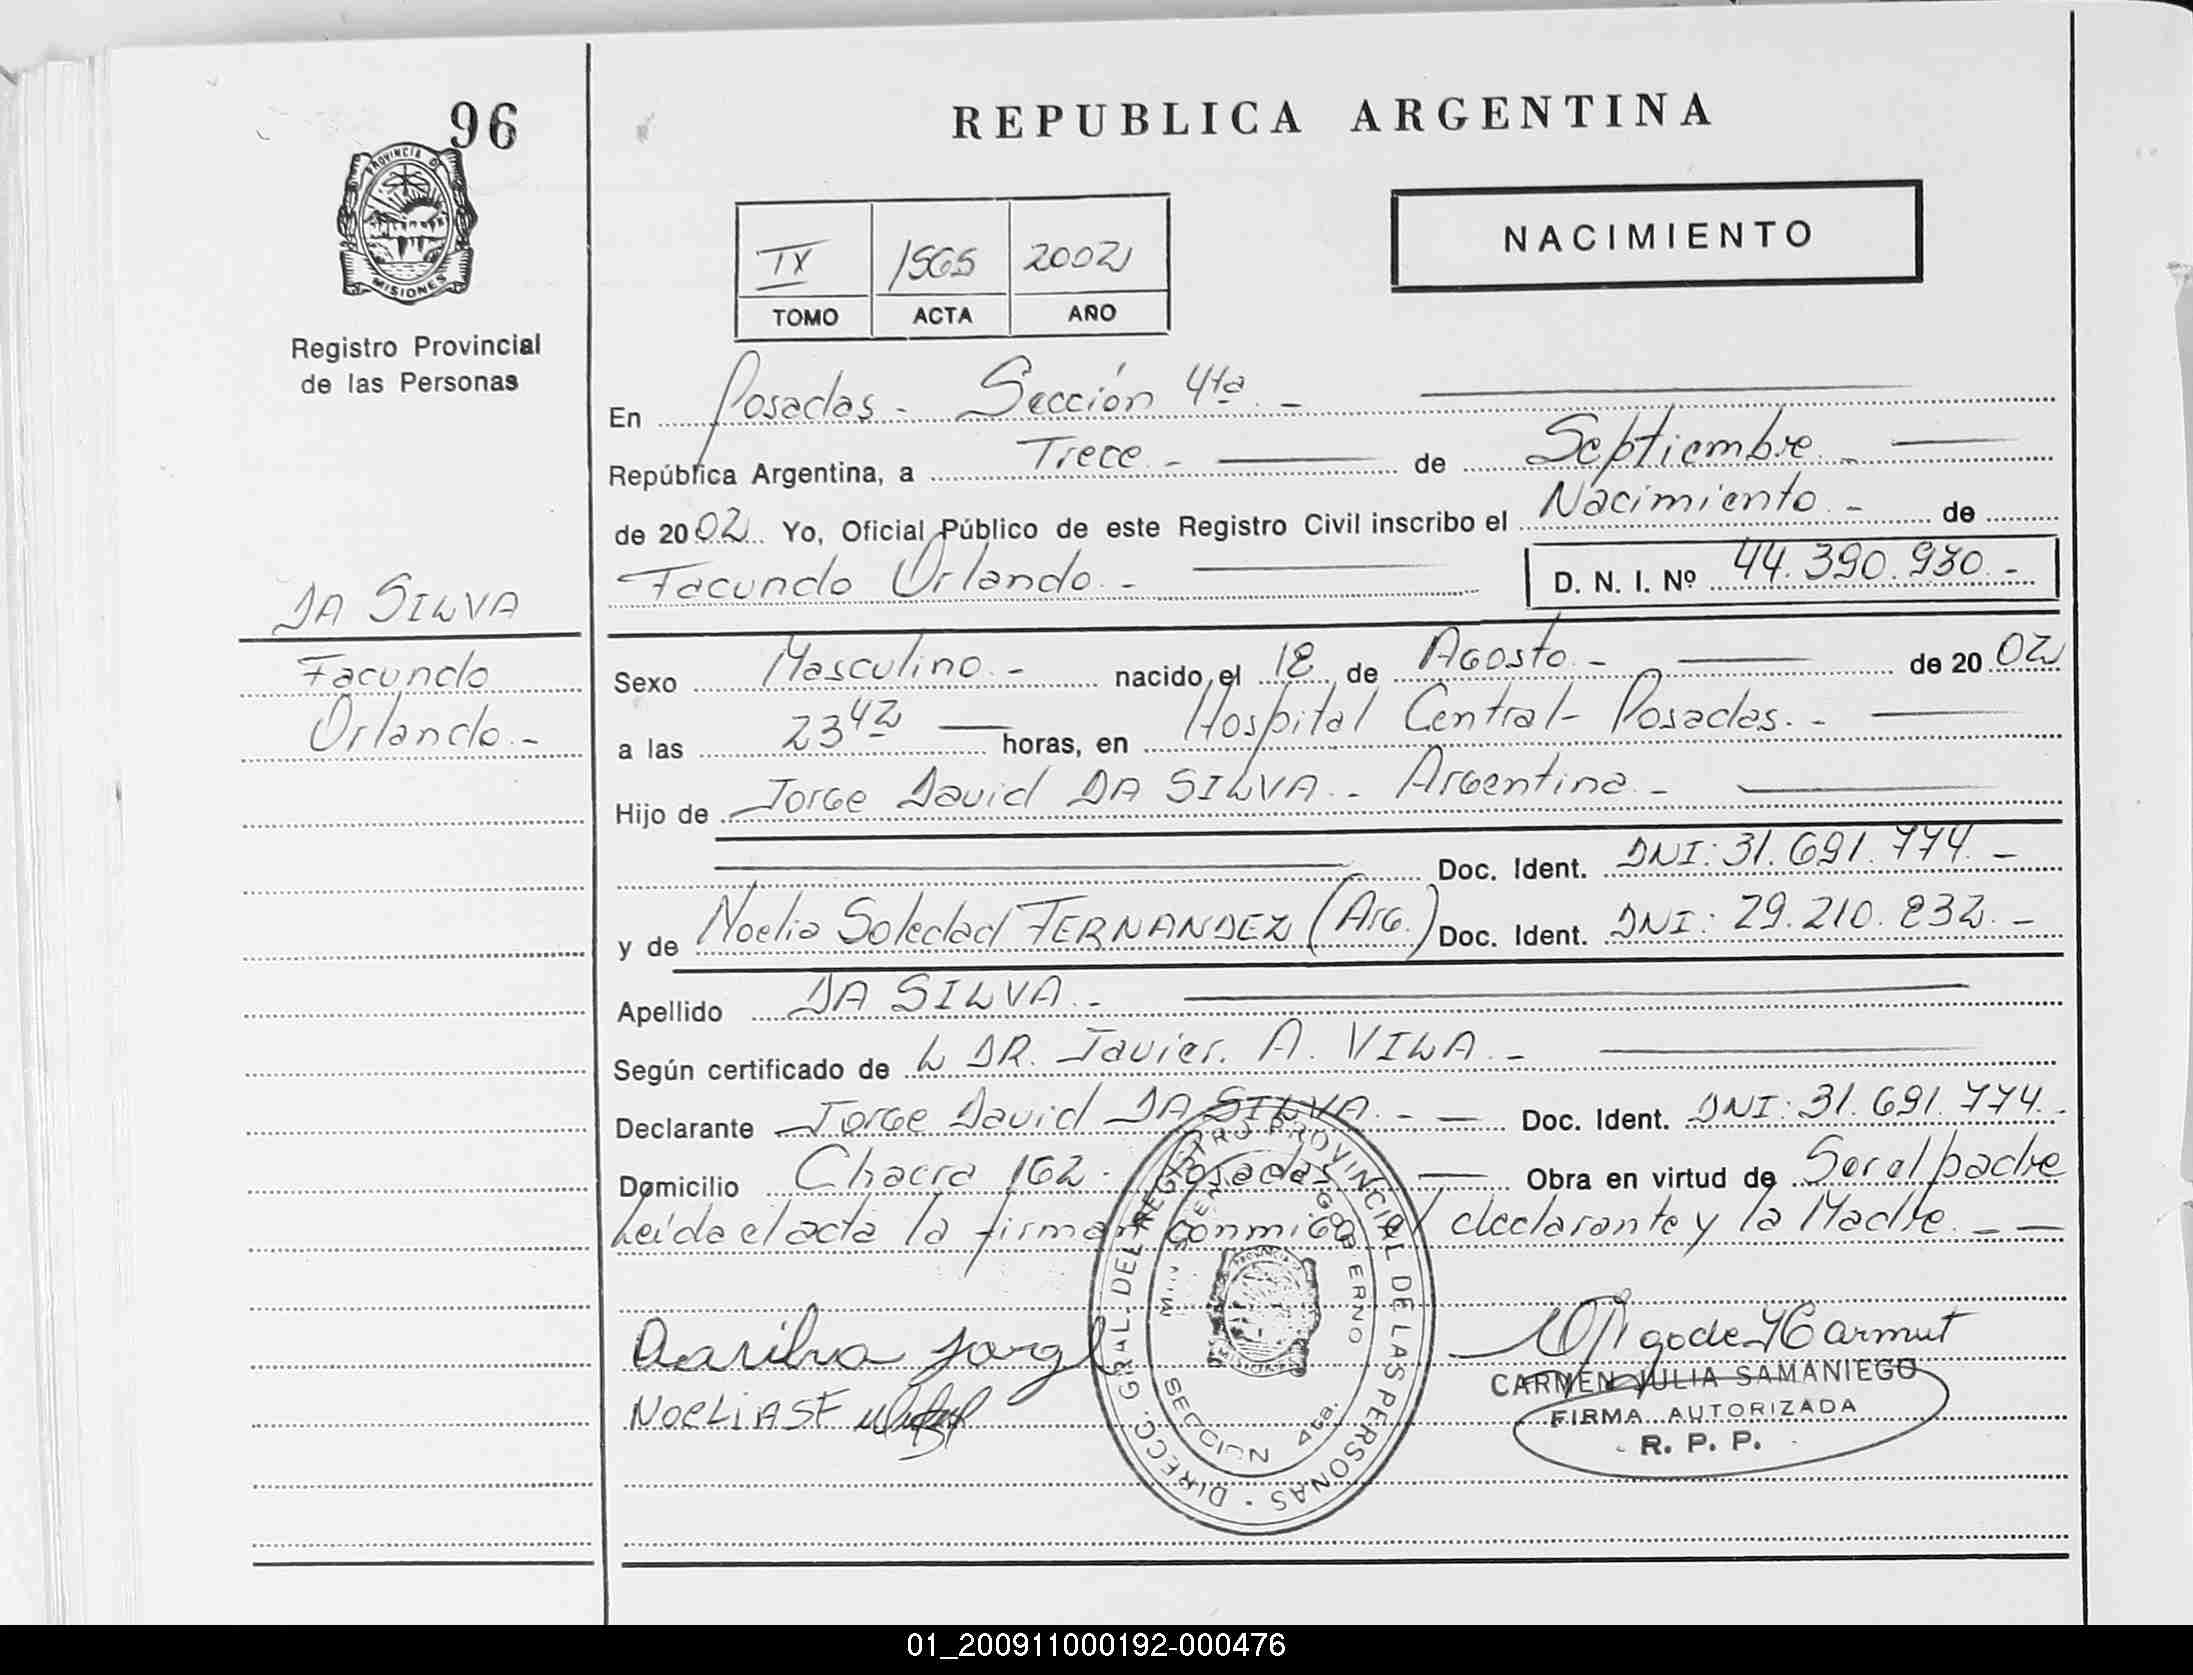 96
PROVINCIA DE
MISIONES
Registro Provincial
de las Personas
DA SILVA
Facundo
Orlando.-
REPUBLICA ARGENTINA
NACIMIENTO
IX 1565 2002
TOMO ACTA AÑO
En Posadas - Sección 4ta. -
República Argentina, a Trece - de Septiembre -
de 2002 Yo, Oficial Público de este Registro Civil inscribo el Nacimiento - de
Facundo Orlando. - D. N. I. Nº 44.390.930.-
Sexo Masculino. - nacido el 18 de Agosto. - de 2002
a las 23 42 horas, en Hospital Central - Posadas. -
Hijo de Jorge David DA SILVA. - Argentina. -
Doc. Ident. DNI: 31.691.774. -
y de Noelia Soledad FERNANDEZ (Arg.) Doc. Ident. DNI: 29.210.832. -
Apellido DA SILVA. -
Según certificado de L DR. Javier. A. VILA. -
Declarante Jorge David DA SILVA. - - Doc. Ident. DNI: 31.691.774.-
Domicilio Chacra 162. Posadas Obra en virtud de Ser el padre
Leída el acta la firman conmigo el declarante y la Madre. - -
DIRECC. GRAL. DEL REGISTRO PROVINCIAL DE LAS PERSONAS
GOBIERNO
SECCION 4ta.
MISIONES
Dasilva Jorge
NOELIA SF
CARMEN JULIA SAMANIEGO
FIRMA AUTORIZADA
R. P. P.
01_200911000192-000476